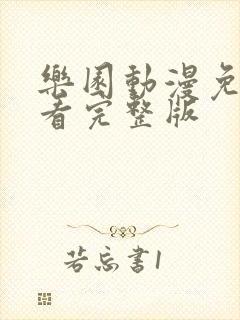 樂園動漫免
看完整版
若忘書1